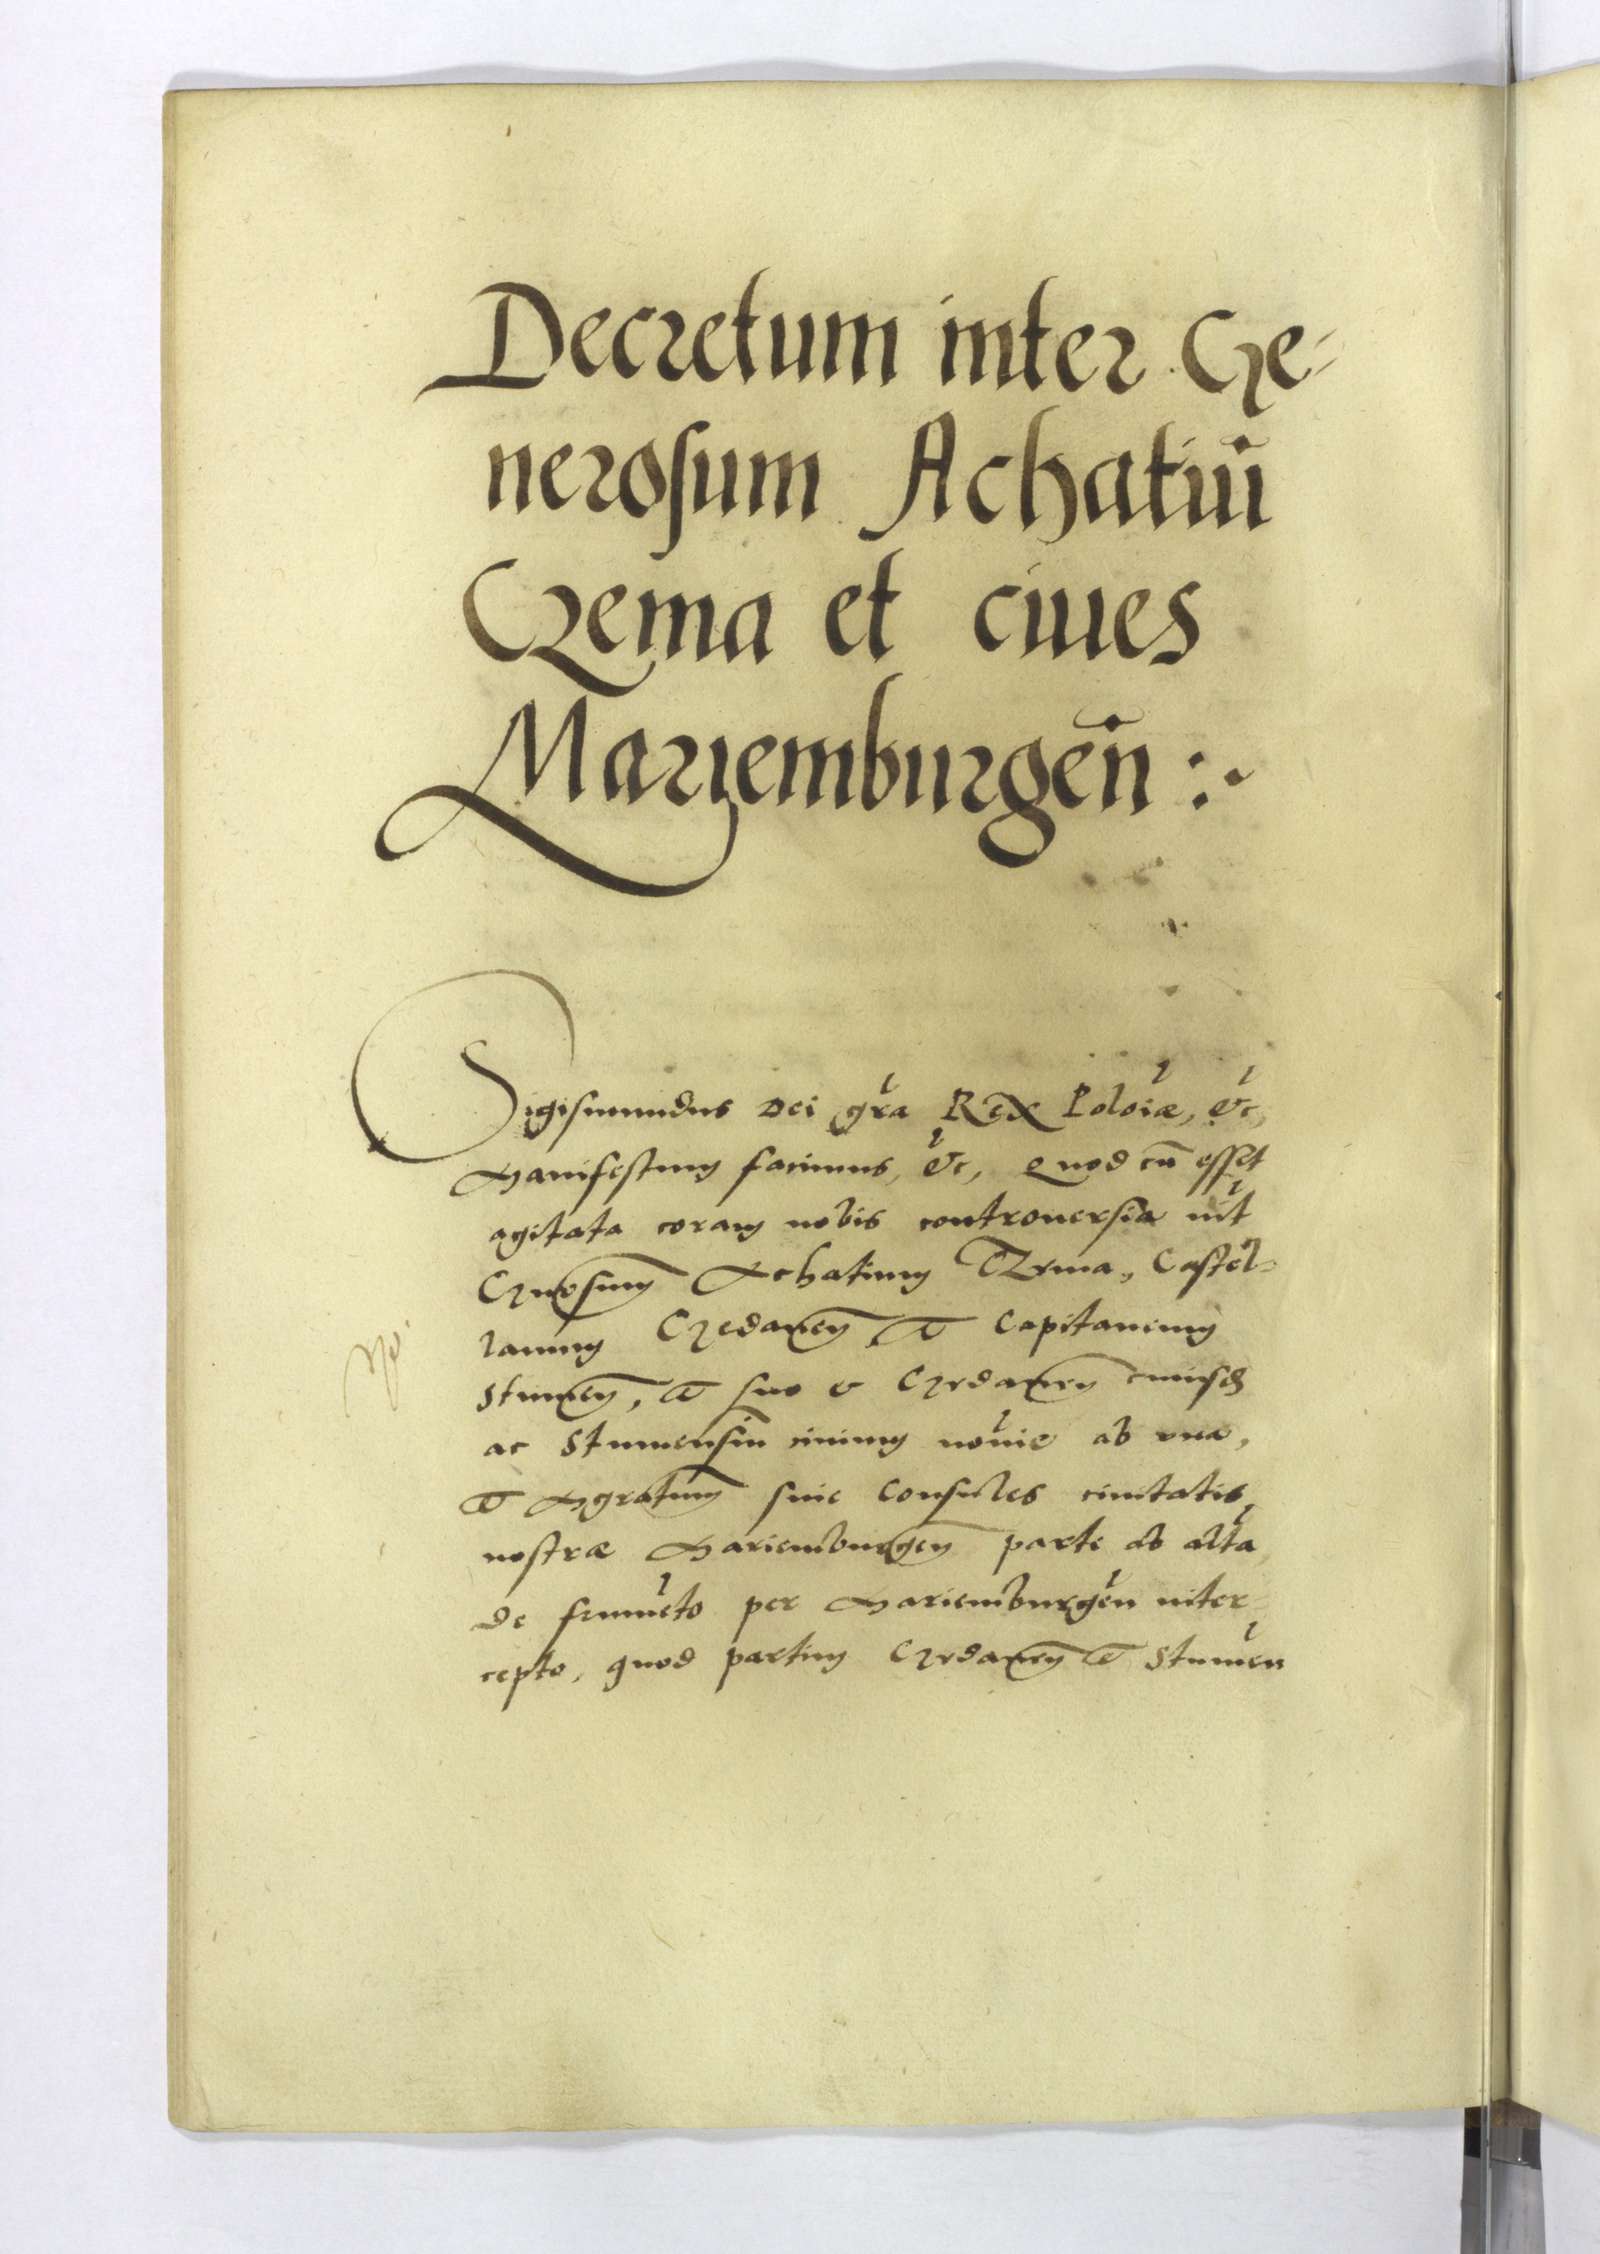 Decretum inter Ge-
nerosum Achatiū
Czema et ciues
Mariemburgeñ :~
Sigismundus Dei gr̃a Rex Poloĩæ, &c̃,
Manifestum facimus, &c̃, Quod cū esset
agitata coram nobis controuersia int̃
Gn̄osum Achatium Czema, Castel-
lanum Gedaneñ et Capitaneum
Stumeñ, et suo & Gedaneñ
ac Stumensiu ciuium noĩe ab vna,
et Mgratum siue Consules ciuitatis
nostræ Mariemburgeñ parte ab alt̃a
de frumẽto per Mariemburgẽn inter-
cepto, quod partim Gedaneñ et Stumẽn